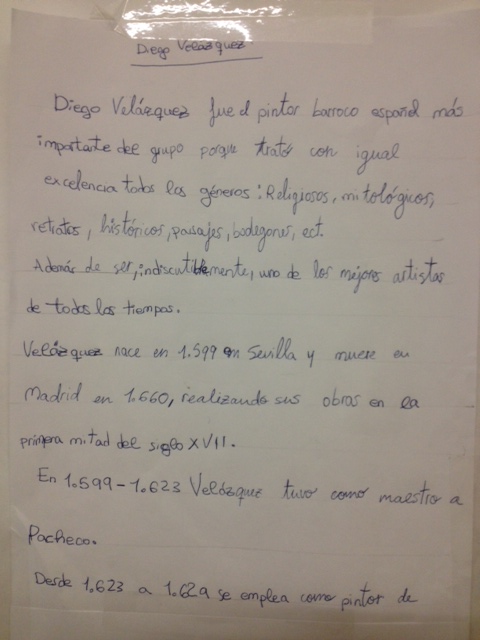 Diego Velázquez
Diego Velázquez fue el pintor barroco español más
importante del grupo porque trató con igual
excelencia todos los géneros: Religiosos, mitológicos,
retratos, históricos, paisajes, bodegones, ect.
Además de ser, indiscutiblemente, uno de los mejores artistas
de todos los tiempos.
Velázquez nace en 1.599 en Sevilla y muere en
Madrid en 1.660, realizando sus obras en la
primera mitad del siglo XVII.
En 1.599-1.623 Velázquez tuvo como maestro a
Pacheco.
Desde 1.623 a 1.629 se emplea como pintor de